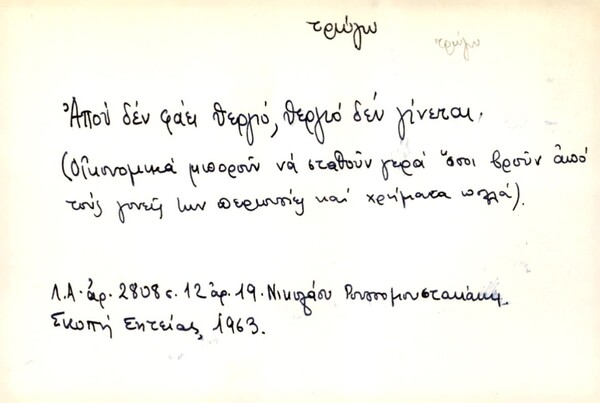 τρώγω
τρώγω
Ἀπού δέν φάει θεργιό, θεργιό δέν γίνεται.
(Οἰκονομικά μποροῦν νά σταθοῦν γερά ὅσοι βροῦν ἀπό
τούς γονεῖς των περιουσίες καί χρήματα πολλά).
Λ.Α. ἀρ. 2808 σ. 12 ἀρ. 19. Νικολάου Ρουσσομουστακάκη,
Σκοπή Σητείας, 1963.